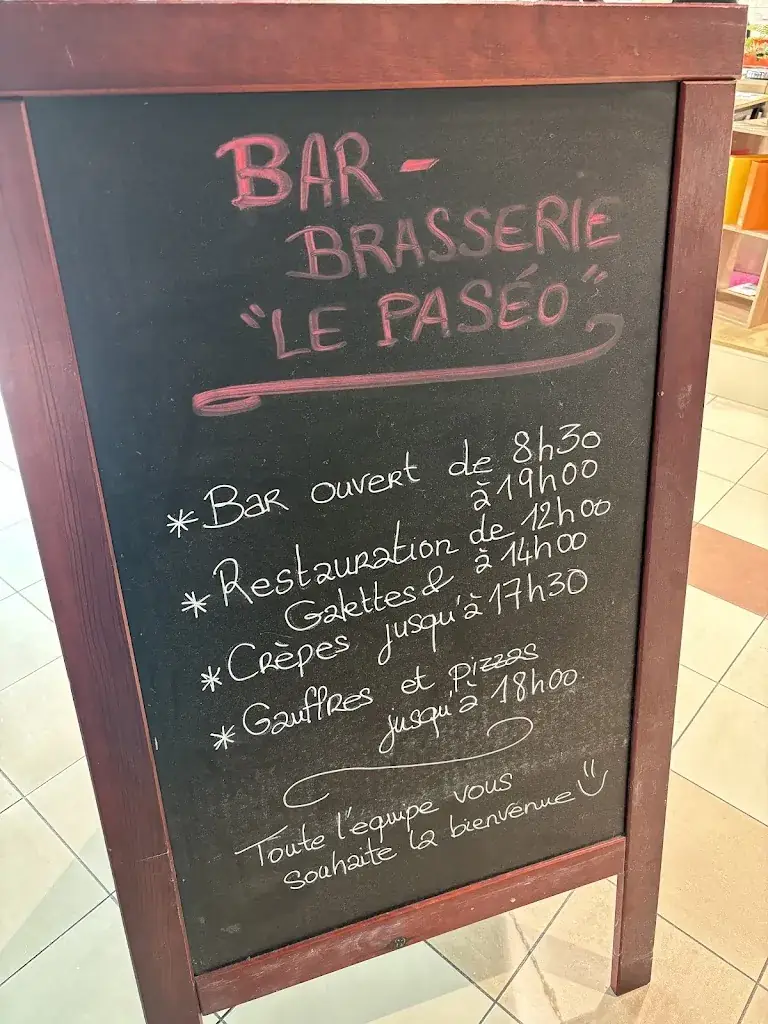 BAR -
BRASSERIE
"LE PASÉO"
* BAR OUVERT de 8h30
à 19h00
* Restauration de 12h00
à 14h00
Galettes &
* Crêpes jusqu'à 17h30
* Gauffres et pizzas
jusqu'à 18h00
Toute l'équipe vous
souhaite la bienvenue